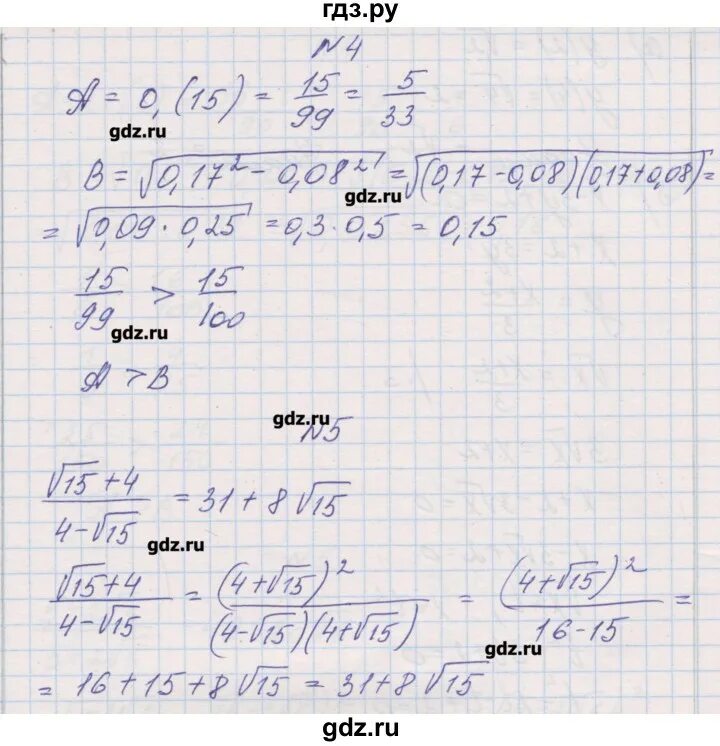 гдз.ру
N4
A = 0,(15) = 15/99 = 5/33
gdz.ru
B = √(0,17² - 0,08²) = √((0,17-0,08)(0,17+0,08)) =
gdz.ru
= √(0,09 · 0,25) = 0,3 · 0,5 = 0,15
15/99 > 15/100
gdz.ru
A > B
gdz.ru
N5
(√15+4)/(4-√15) = 31 + 8√15
gdz.ru
(√15+4)/(4-√15) = (4+√15)²/((4-√15)(4+√15)) = (4+√15)²/(16-15) =
gdz.ru
= 16 + 15 + 8√15 = 31 + 8√15
gdz.ru